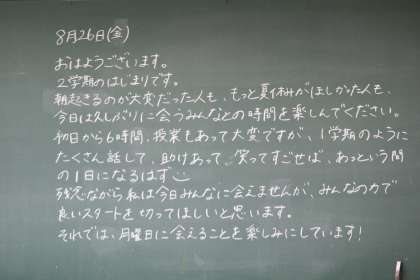 8月26日(金)
おはようございます。
2学期のはじまりです。
朝起きるのが大変だった人も、もっと夏休みがほしかった人も、
今日は久しぶりに会うみんなとの時間を楽しんでください。
初日から6時間、授業もあって大変ですが、1学期のように
たくさん話して、助けあって、笑ってすごせば、あっという間
の1日になるはず
残念ながら私は今日みんなに会えませんが、みんなの力で
良いスタートを切ってほしいと思います。
それでは、月曜日に会えることを楽しみにしています!